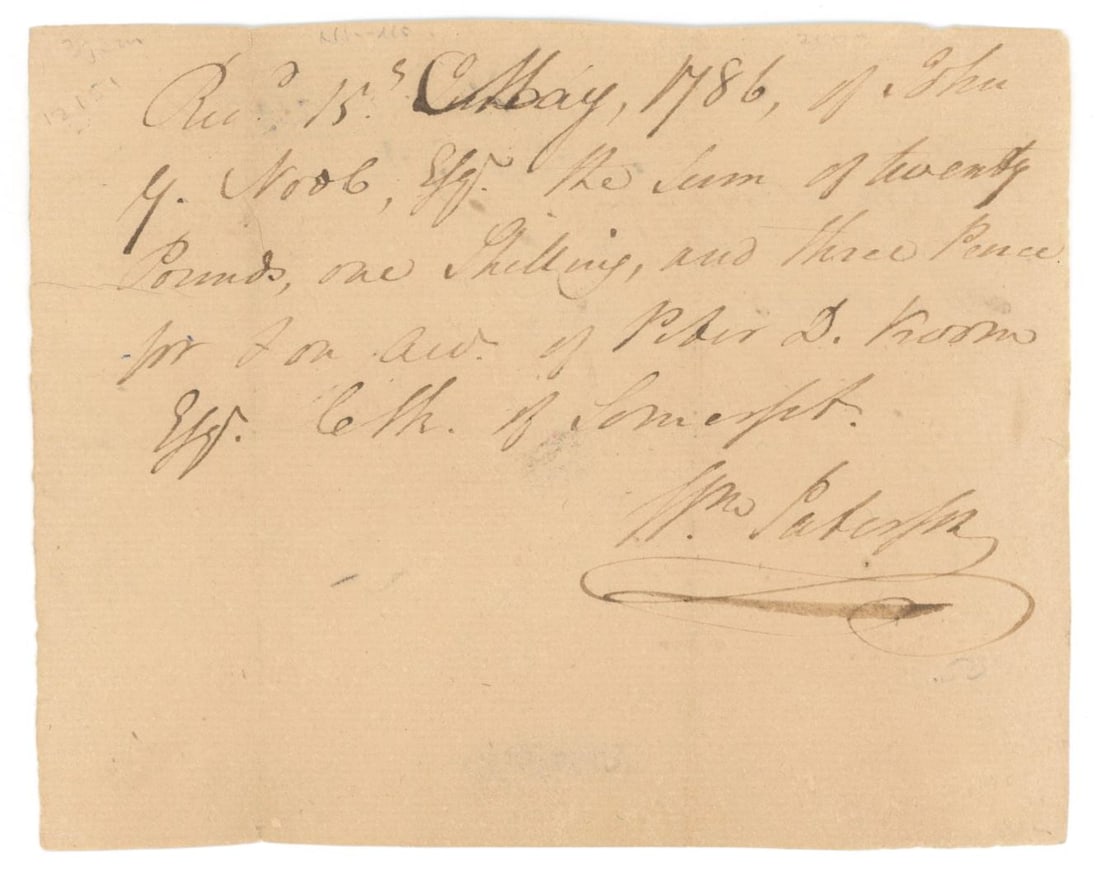 Recd. 15. May, 1786, of John
Y. Noel, Esqr. the Sum of twenty
Pounds, one Shilling, and three Pence
for & on Acct. of Peter D. Vroom
Esqr. Clk. of Somerset.
Wm. Paterson